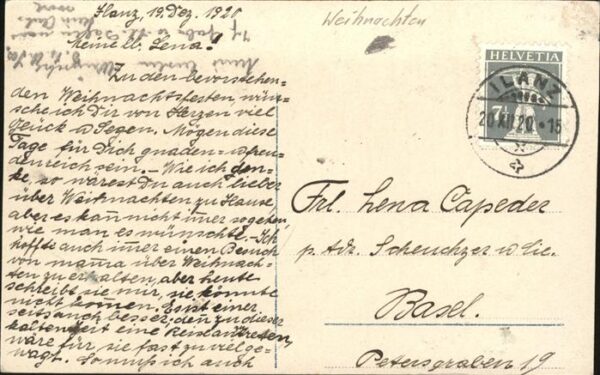 Ilanz, 19. Dez. 1920
Meine lb. Lena!
Zu den bevorstehen-
den Weihnachtsfesten, wün-
sche ich Dir von Herzen viel
Glück u Segen. Mögen diese
Tage für Dich gnaden- u freu-
denreich sein. – Wie ich den-
ke, so wärest Du auch lieber
über Weihnachten zu Hause,
aber es kañ nicht im̄er so gehen,
wie man es wünschte. – Ich
hoffte auch im̄er einen Besuch
von mama über Weihnach-
ten zu erhalten, aber heute
schreibt sie mir, sie könnte
nicht kom̄en. Es ist einer
seits auch besser, den zu dieser
kalten Zeit eine Reise antreten,
wäre für sie fast zu viel ge-
wagt. So muss ich auch
Weihnachten
HELVETIA
7½
ILANZ
20.XII.20.-15
Frl. Lena Capeder
p. Adr. Scheuchzer u. Cie.
Basel.
Petersgraben 19